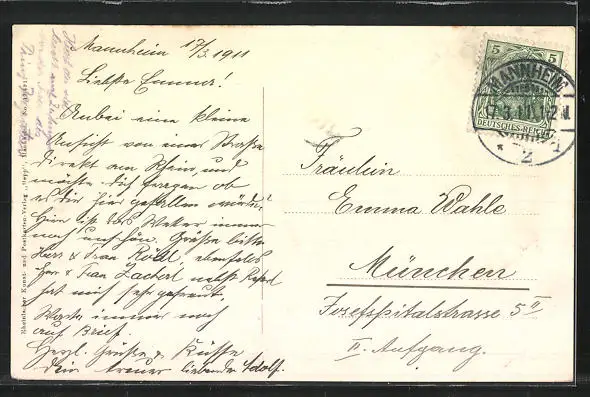 Mannheim 17/3. 1911
Liebste Emma!
Anbei eine kleine
Ansicht von einer Straße
direkt am Rhein, und
möchte Dich fragen ob
es Dir hier gefallen würde?
Hier ist das Wetter immer
noch unschön. Grüße bitte
Herr & Frau Rödl, ebenfalls
Herr & Frau Zacherl nebst
hat mich sehr gefreut.
Warte immer noch
auf Brief.
Herzl. Grüße & Küsse
Dein treuer liebender Adolf.
Rheinischer Kunst- und Postkarten-Verlag
5 5
DEUTSCHES REICH
MANNHEIM
17.3.
* 2
Fräulein
Emma Wahle
München
Josefspitalstrasse 5 II
II. Aufgang.